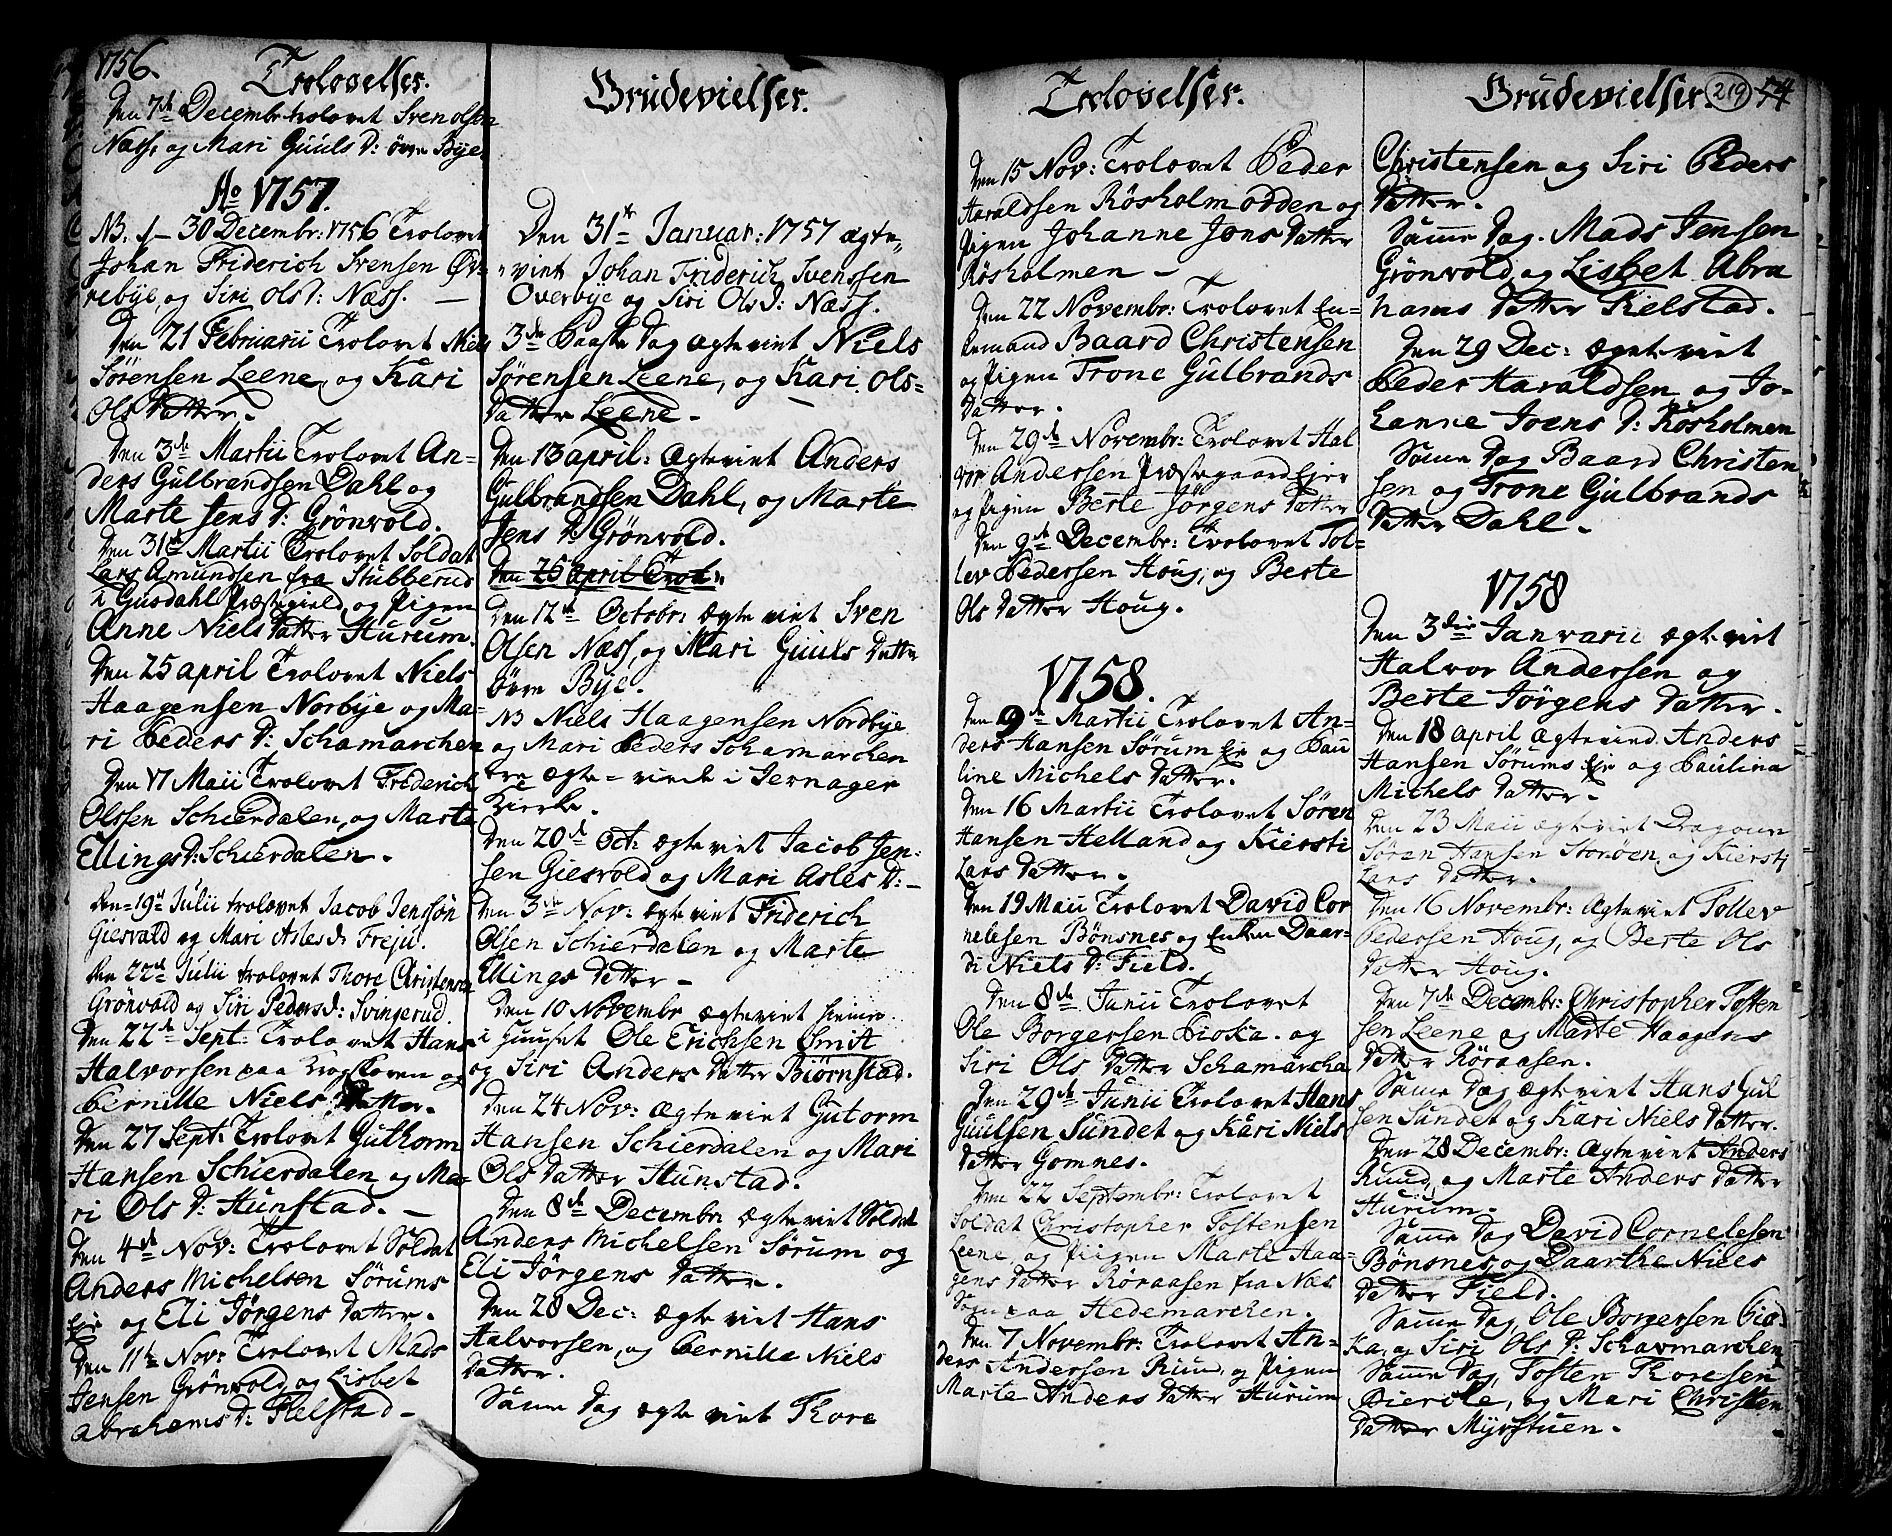 1756.
Trolovelser.
Den 7de Decembr trolovet Sven olsen
Næss, og Mari Guuls D: øvre Bÿe.
Ao 1757.
NB. 1 – 30 Decembr: 1756 Trolovet
Johan Friderich Svensen Øv-
rebÿe, og Siri ols D: Næss. —
Den 21 Februarii Trolovet Niels
Sörensen Leene, og Kari
Ols Datter.
Den 3de Martii Trolovet An-
ders Gulbrandsen Dahl og
Marte Jens D: Grönvold.
Den 31te Martii Trolovet Soldat
Lars Amundsen fra Stubberud
i Gusdahl Præstegield, og Pigen
Anne Niels Datter Hurum.
Den 25 april Trolovet Niels
Haagensen Norbÿe og Ma-
ri Peders D: Schamarchen
Den 17 Maii Trolovet Friderich
Olssen Schierdalen, og Marte
Ellings D: Schierdalen.
Den 19de Julii trolovet Jacob Jenssön
Giesvald og Mari Asles D: Frejü.
Den 22de Julii trolovet Thore Christensen
Grönvald og Siri Peders d: Svingerud.
Den 22de Sept: Trolovet Hans
Halvorsen paa Krogskoven og
Pernille Niels Datter.
Den 27 Sept: Trolovet Guthorm
Hansen Schierdalen og Ma-
ri Ols D: Hunstad. —
Den 4de Nov: Trolovet Soldat
Anders Michelsen Sörums
Eje og Eli Jörgens Datter.
Den 11te Nov: Trolovet Mads
Jensen Grönvold og Lisbet
Abrahams D: Fielstad —
Brüdevielser.
Den 31te Januar: 1757 ægte-
viet Johan Friderich Svenssen
Overbÿe og Siri Ols D: Næss.
3de Paaske Dag ægteviet Niels
Sörensen Leene, og Kari Ols-
Datter Leene –
Den 13 april: ægteviet Anders
Gulbrandsen Dahl, og Marte
Jens D: Grönvold.
Den 25 april Trol-
Den 12te Octobr: ægteviet Sven
Olsen Næss, og Mari Guuls Datter
övre Bÿe.
NB Niels Haagensen Nordbÿe
og Mari Peders Schamarchen
ere ægte-viede i Jernager
Kirke.
Den 20de Oct: ægteviet Jacob Jen-
sen Giesvold og Mari Asles D: –
Den 3de Nov: ægteviet Friderich
Olsen Schierdalen og Marte
Ellings Datter –
Den 10 Novembr ægteviet hieme
i Huuset Ole Erichsen Smit
og Siri Anders Datter Biörnstad.
Den 24 Nov: ægteviet Gutorm
Hansen Schierdalen og Mari
Ols Datter Hunstad.
Den 8de Decembr: ægteviet Soldat
Anders Michelsen Sörum og
Eli Jörgens Datter.
Den 28 Dec: ægteviet Hans
Halvorsen, og Pernille Niels
Datter.
Samme Dag ægteviet Thore
Trolovelser.
Den 15 Nov: Trolovet Peder
Haraldsen Rösholmodden og
Pigen Johanne Jons Datter
Rösholmen –
Den 22 Novembr: Trolovet En-
kemand Baard Christensen
og Pigen Trone Gulbrands
Datter.
Den 29de Novembr: Trolovet Hal
vor Andersen Præstegaard Ejer
og Pigen Berte Jörgens Datter
Den 9de Decembr: Trolovet Tol-
lev Pedersen Houg, og Berte
Ols Datter Houg.
1758.
Den 9de Martii Trolovet An-
ders Hansen Sörum Eje og Pau
line Michels Datter.
Den 16 Martii Trolovet Sören
Hansen Helland og Kiersti
Lars Datter.
Den 19 Maii Trolovet David Cor
nelesen Bönsnes og Enken Daar-
di Niels D: Field.
Den 8de Junii Trolovet
Ole Borgersen Pioka. og
Siri Ols Datter Schamarcha
Den 29de Junii Trolovet Hans
Guulsen Sundet og Kari Niels
Datter Gomnes.
Den 22 Septembr: Trolovet
Soldat Christopher Tostensen
Leene og Piigen Marte Haa-
gens Datter Röraasen fra Næs
Sogn paa Hedemarchen.
Den 7 Novembr: Trolovet An-
ders Andersen Ruud, og Pigen
Marte Anders Datter Hurum
Brüdevielser.
219
54
Christensen og Siri Peders
Datter.
Samme Dag. Mads Jensen
Grönvold og Lisbet Abra
hams Datter Fielstad.
Den 29 Dec: ægteviet
Peder Haraldsen og Jo-
hanne Joens D: Rösholmen
Samme Dag Baard Christen
sen og Trone Gulbrands
Datter Dahl.
1758
Den 3die Januarii ægteviet
Halvor Andersen og
Berte Jörgens Datter.
Den 18 april ægteviet Anders
Hansen Sörums Eje og Paulina
Michels Datter.
Den 23 Maii ægteviet Dragoun
Sören Hansen Storöen, og Kiersti
Lars Datter.
Den 16 Novembr: ægteviet Tollev
Pedersen Houg, og Berte Ols
Datter Houg.
Den 7de Decembr: Christopher Tosten
sen Leene og Marte Haagens
Datter Röraasen.
Samme Dag ægteviet Hans Gul
sen Sundet og Kari Niels Datter.
Den 28 Decembr: ægteviet Anders
Ruud, og Marte Anders Datter
Hurum.
Samme Dag David Cornelesen
Bönsnes og Daarthe Niels
Datter Field.
Samme Dag, Ole Borgersen Pio-
ka, og Siri Ols D: Schavmarchen
Samme Dag, Tosten Thoresen
Pierile, og Mari Christen
Datter Myrstuen.